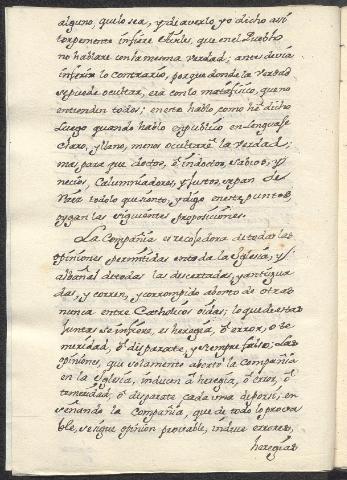 alguno, que lo sea, y de averlo yo dicho assi
torpemente infiere Ehrles, que en el Pueblo
no hablare con la mesma verdad; antes devia
inferir lo contrario, porque donde la verdad
se puede ocultar, era con lo metafisico, que no
entienden todos; en esto hablo, como he dicho
Luego quando hablo en publico en Lenguaje
Claro, y llano, menos ocultare la verdad;
mas para que doctos, è indoctos, sabios, y
necios, Calumniadores, y Justos, sepan de
vèrez todo lo que siento, y digo en este punto,
oygan las siguientes proposiciones.
La Compañia es recoledora de todas las
opiniones permitidas en toda la Iglesia, y
albañal de todas las desertadas, y antigua
das, y corren, y corrompido aborto de otras
nunca entre Catholicos oidas; lo que de estas
Juntas se infiere, es heregia, ò error, ò te
meridad, ò disparate, y siempre falso; las
opiniones, que solamente abortò la Compañia
en la Iglesia, inducen à heregia, ò error, ò
temeridad, ò disparate cada una de por si; en
señando la Compañia, que de todo lo prova
ble, se sigue opinion provable, induce errores,
heregias